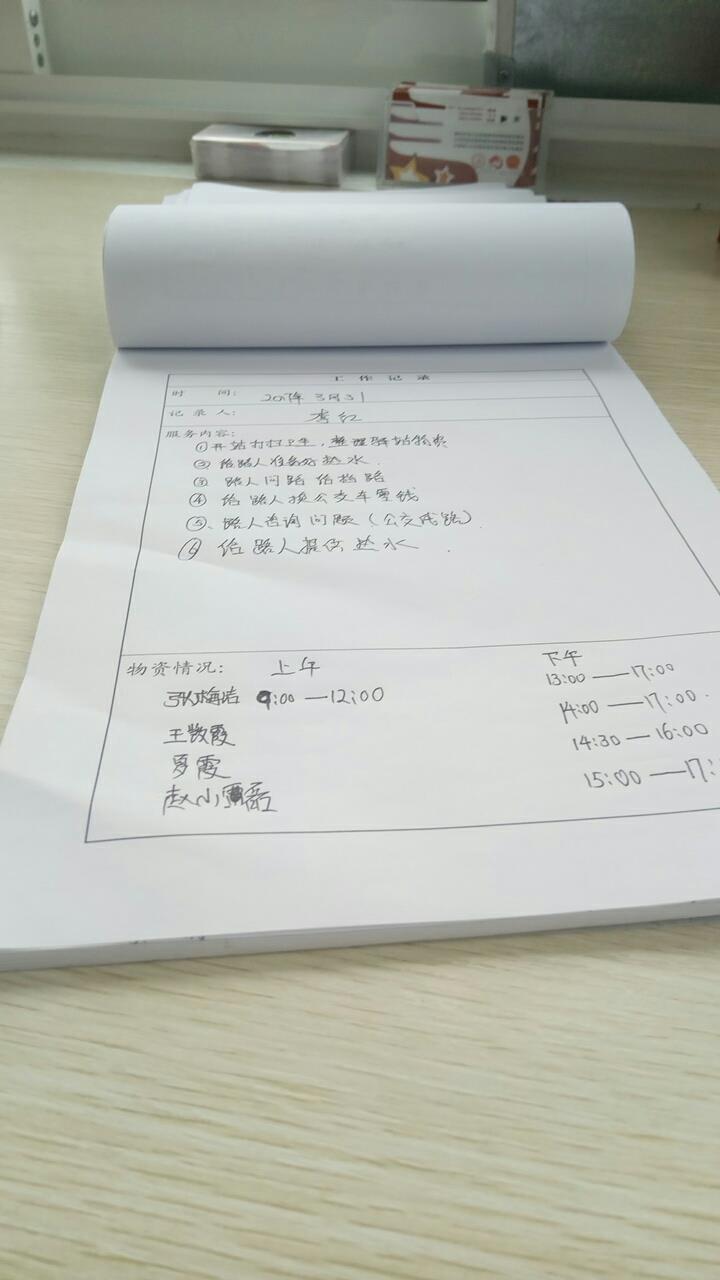 工作记录
时 间: 3月31
记录人: 李红
服务内容:
①开站打扫卫生,整理驿站物资
②给路人准备好热水.
③ 路人问路给指路
④ 给路人换公交车零钱
⑤、路人咨询问题(公交线路).
⑥ 给路人提供热水.
物资情况: 上午 下午
张梅洁 9:00—12:00 13:00—17:00
王敬霞 14:00—17:00.
罗霞 14:30—16:00
赵小 15:00—17: